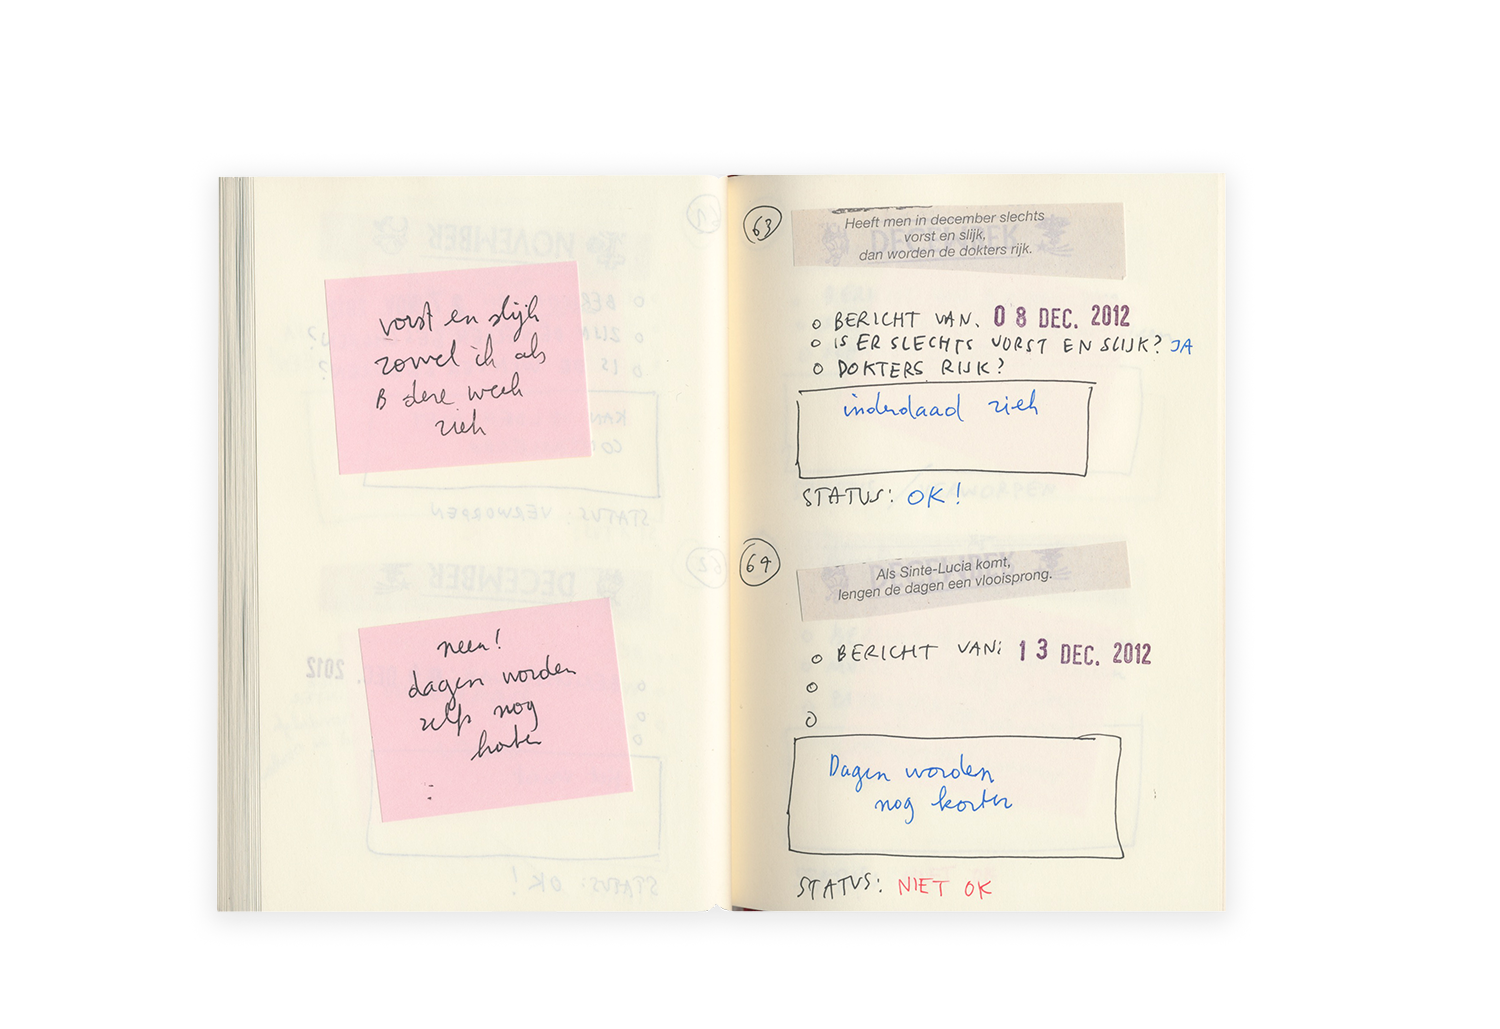 vorst en slijk
zowel ik als
B deze week
ziek
neen!
dagen worden
zelfs nog
korter
63
Heeft men in december slechts
vorst en slijk,
dan worden de dokters rijk.
o BERICHT VAN. 08 DEC. 2012
o IS ER SLECHTS VORST EN SLIJK? JA
o DOKTERS RIJK?
inderdaad ziek
STATUS: OK!
64
Als Sinte-Lucia komt,
lengen de dagen een vlooisprong.
o BERICHT VAN: 13 DEC. 2012
o
o
Dagen worden
nog korter
STATUS: NIET OK